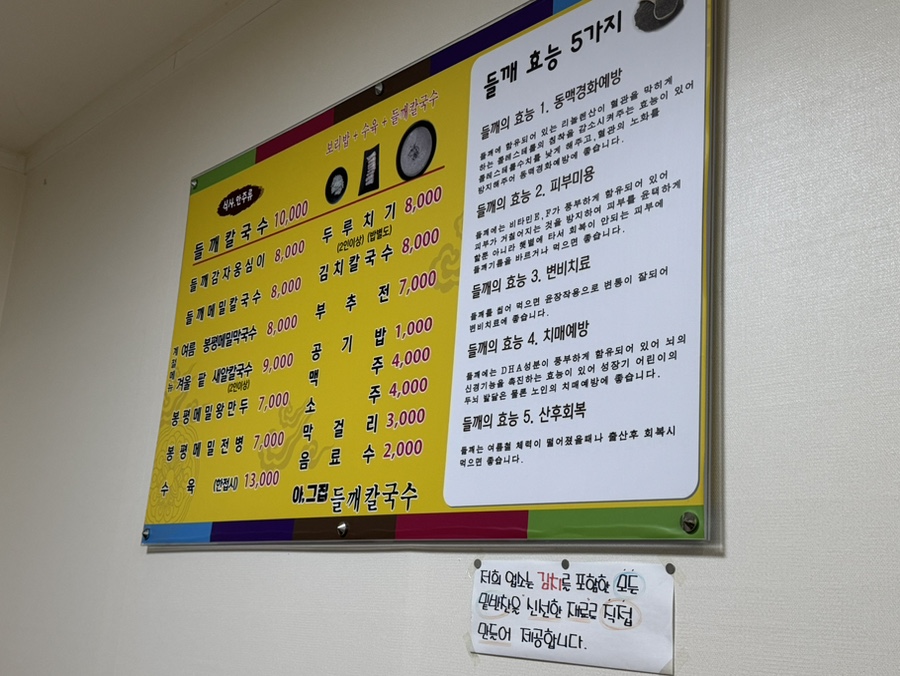 보리밥 + 수육 + 들깨칼국수
식사.안주류
들깨칼국수 10,000
들깨감자옹심이 8,000
들깨메밀칼국수 8,000
계절메뉴
여름 봉평메밀막국수 8,000
겨울 팥 새알칼국수 9,000
(2인이상)
봉평메밀왕만두 7,000
봉평메밀전병 7,000
수육 (한접시) 13,000
두루치기 8,000
(2인이상) (밥별도)
김치칼국수 8,000
부추전 7,000
공기밥 1,000
맥주 4,000
소주 4,000
막걸리 3,000
음료수 2,000
아.그집 들깨칼국수
들깨 효능 5가지
들깨의 효능 1. 동맥경화예방
들깨에 함유되어 있는 리놀렌산이 혈관을 막히게
하는 콜레스테롤의 침착을 감소시켜주는 효능이 있어
콜레스테롤수치를 낮게 해주고,혈관의 노화를
방지해주어 동맥경화예방에 좋습니다.
들깨의 효능 2. 피부미용
들깨에는 비타민E,F가 풍부하게 함유되어 있어
피부가 거칠어지는 것을 방지하여 피부를 윤택하게
할뿐 아니라 햇볕에 타서 회복이 안되는 피부에
들깨기름을 바르거나 먹으면 좋습니다.
들깨의 효능 3. 변비치료
들깨를 씹어 먹으면 윤장작용으로 변통이 잘되어
변비치료에 좋습니다.
들깨의 효능 4. 치매예방
들깨에는 DHA성분이 풍부하게 함유되어 있어 뇌의
신경기능을 촉진하는 효능이 있어 성장기 어린이의
두뇌 발달은 물론 노인의 치매예방에 좋습니다.
들깨의 효능 5. 산후회복
들깨는 여름철 체력이 떨어졌을때나 출산후 회복시
먹으면 좋습니다.
저희 업소는 김치를 포함한 모든
밑반찬을 신선한 재료로 직접
만들어 제공합니다.